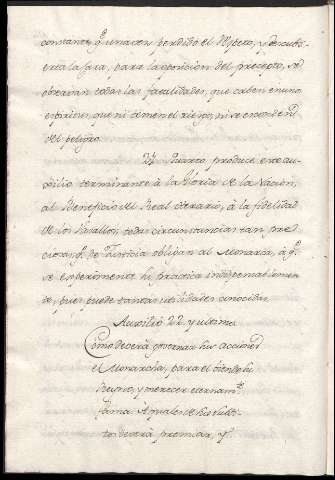 constante, q.e una vez perdido el respeto, y descubi-
erta la cara, para la oposicion del precepto, se
obrarán todas las facultades, que caben en unos
espiritus, que ni temen el riesgo, ni se esconden
del peligro.
24 Quanto produce este au-
xilio terminante à la Gloria de la Nacion,
al Beneficio del Real Herario, à la fidelidad
de los Vasallos, todas circunstancias tan pre-
ciosas, q.e de Justicia obligan al Monarca, à q.e
se experimente la practica indispensablemen-
te, pues puede tantas utilidades conocidas.
Auxilio 22. y ultimo
Como deverà governar sus acciones
el Monarcha, para el bien de su
Reyno, y merecer eternam.te
fama. A quales de sus Subdi-
tos deverà premiar, y